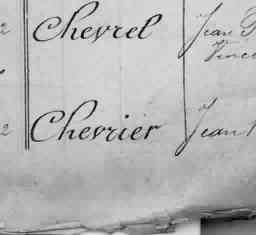 2 Chevrel Jean
Vince
2 Chevrier Jean